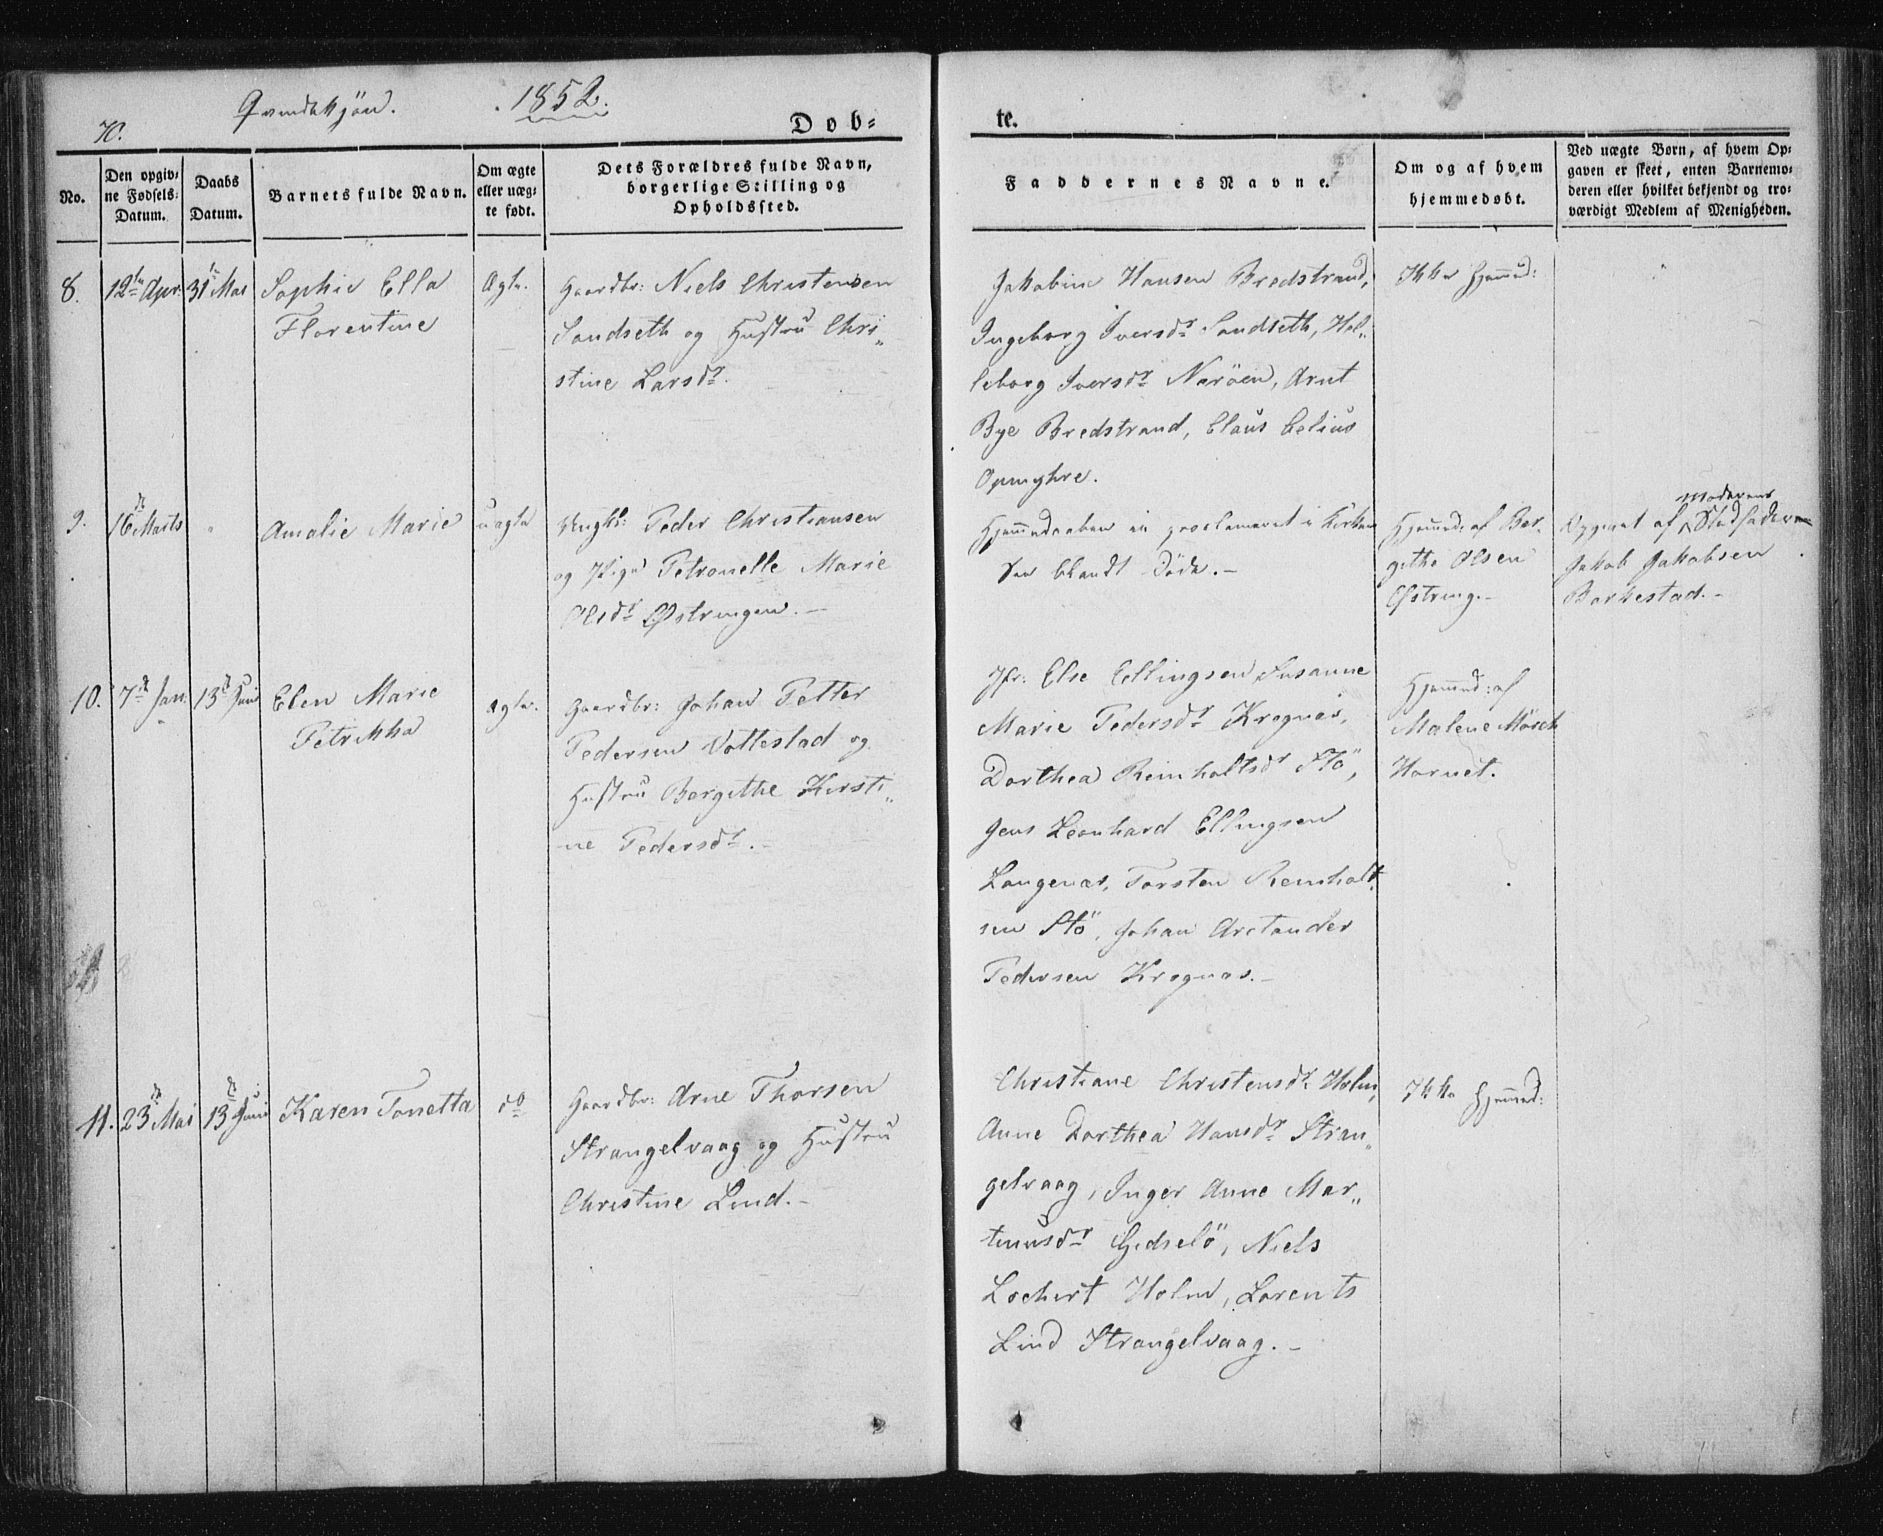 70.
Qvindekjön.
1852.
Døb=
te.
No.
Den opgiv=
ne Fødsels=
Datum.
Daabs
Datum.
Barnets fulde Navn.
Om ægte
eller uæg=
te født.
Dets Forældres fulde Navn,
borgerlige Stilling og
Opholdssted.
Faddernes Navne.
Om og af hvem
hjemmedøbt.
Ved uægte Børn, af hvem Op=
gaven er skeet, enten Barnemo=
deren eller hvilket bekjendt og tro=
værdigt Medlem af Menigheden.
8.
12te Apr.
31te Mai
Sophie Ella
Florentine
Ægte.
Gaardbr: Niels Christensen
Sandseth og Hustru Chri„
stine Larsdr.
Jakobine Hansen Bredstrand,
Ingeborg Iversdr Sandseth, Hol„
leborg Iversdr Naröen, Arnt
Bye Bredstrand, Claus Celius
Opmyhre.
Ikke Hjemmed:
9.
16de Marts
"
Amalie Marie
uægte
Ungkl: Peder Christiansen
og Pige Petronelle Marie
Olsdr Østringen.-
Hjemmedaaben er proclameret i Kirken
den blandt Døde.-
Hjemmed: af Ber„
githe Olsen
Østring.-
Opgivet af Moderens Stedfader
Jakob Jakobsen
Barkestad.-
10.
7de Jan.
13de Juni
Elen Marie
Petrikka
ægte.
Gaardbr: Johan Petter
Pedersen Vottestad og
Hustru Bergithe Kirsti„
ne Pedersdr.-
Jfr: Else Ellingsen, Susanne
Marie Pedersdr Krognæs,
Dorthea Reinholtsdr Stö,
Jens Leonhard Ellingsen
Langenæs, Torsten Reinholt„
sen Stö, Johan Arctander
Pedersen Krognæs.-
Hjemmed: af
Malene Mörch
Hornet.
11.
23de Mai
13de Juni
Karen Tonetta
do
Gaardbr: Arne Thorsen
Strangelvaag og Hustru
Christine Lind.-
Christiane Christensdr Holm,
Anne Dorthea Hansdr Stran„
gelvaag, Inger Anne Mar„
tinusdr Gidselö, Niels
Lochert Holm, Lorents
Lind Strangelvaag.-
Ikke Hjemmed: